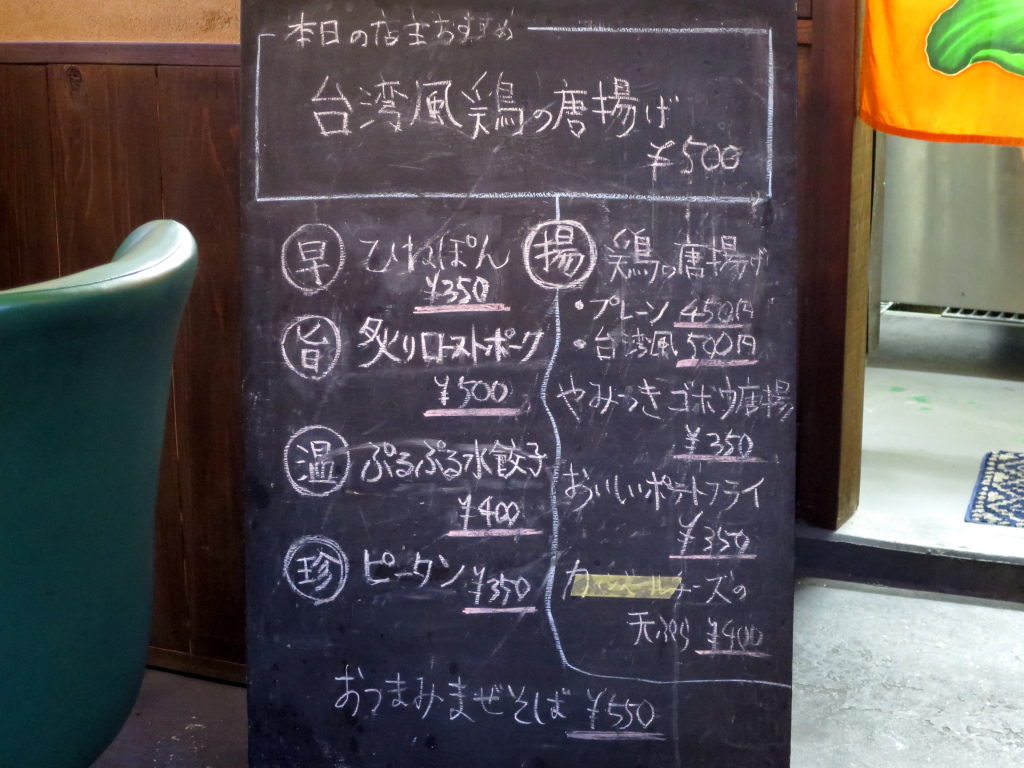 本日の店主おすすめ
台湾風鶏の唐揚げ
¥500
早 ひねぽん
¥350
旨 炙りローストポーク
¥500
温 ぷるぷる水餃子
¥400
珍 ピータン ¥350
揚 鶏の唐揚げ
・プレーン 450円
・台湾風 500円
やみつきゴボウ唐揚
¥350
おいしいポテトフライ
¥350
カマンベールチーズの
天ぷら ¥400
おつまみまぜそば ¥550